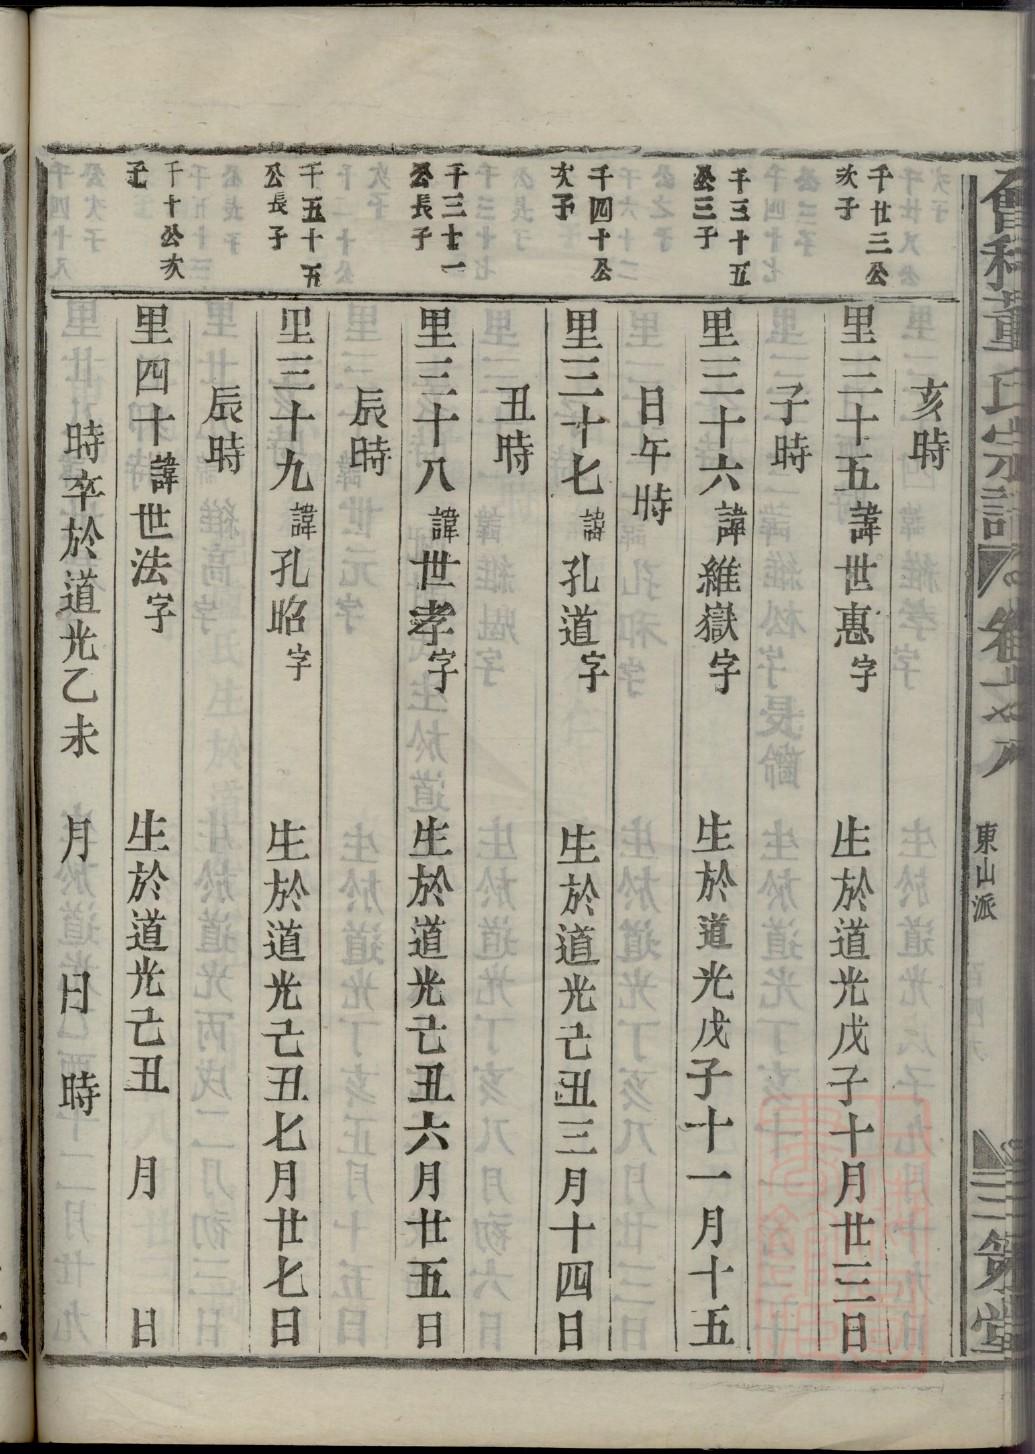 亥時
千廿三公
次子
里三十五諱世惠字　生於道光戊子十月廿三日
子時
千三十五
公三子
里三十六諱維嶽字　生於道光戊子十一月十五
日午時
千四十公
次子
里三十七諱孔道字　生於道光己丑三月十四日
丑時
千三十一
公長子
里三十八諱世孝字　生於道光己丑六月廿五日
辰時
千五十五
公長子
里三十九諱孔昭字　生於道光己丑七月廿七日
辰時
千十公次
子
里四十諱世法字　生於道光己丑　月　日
時卒於道光乙未　月　日　時
氏宗譜
東山派
三策堂